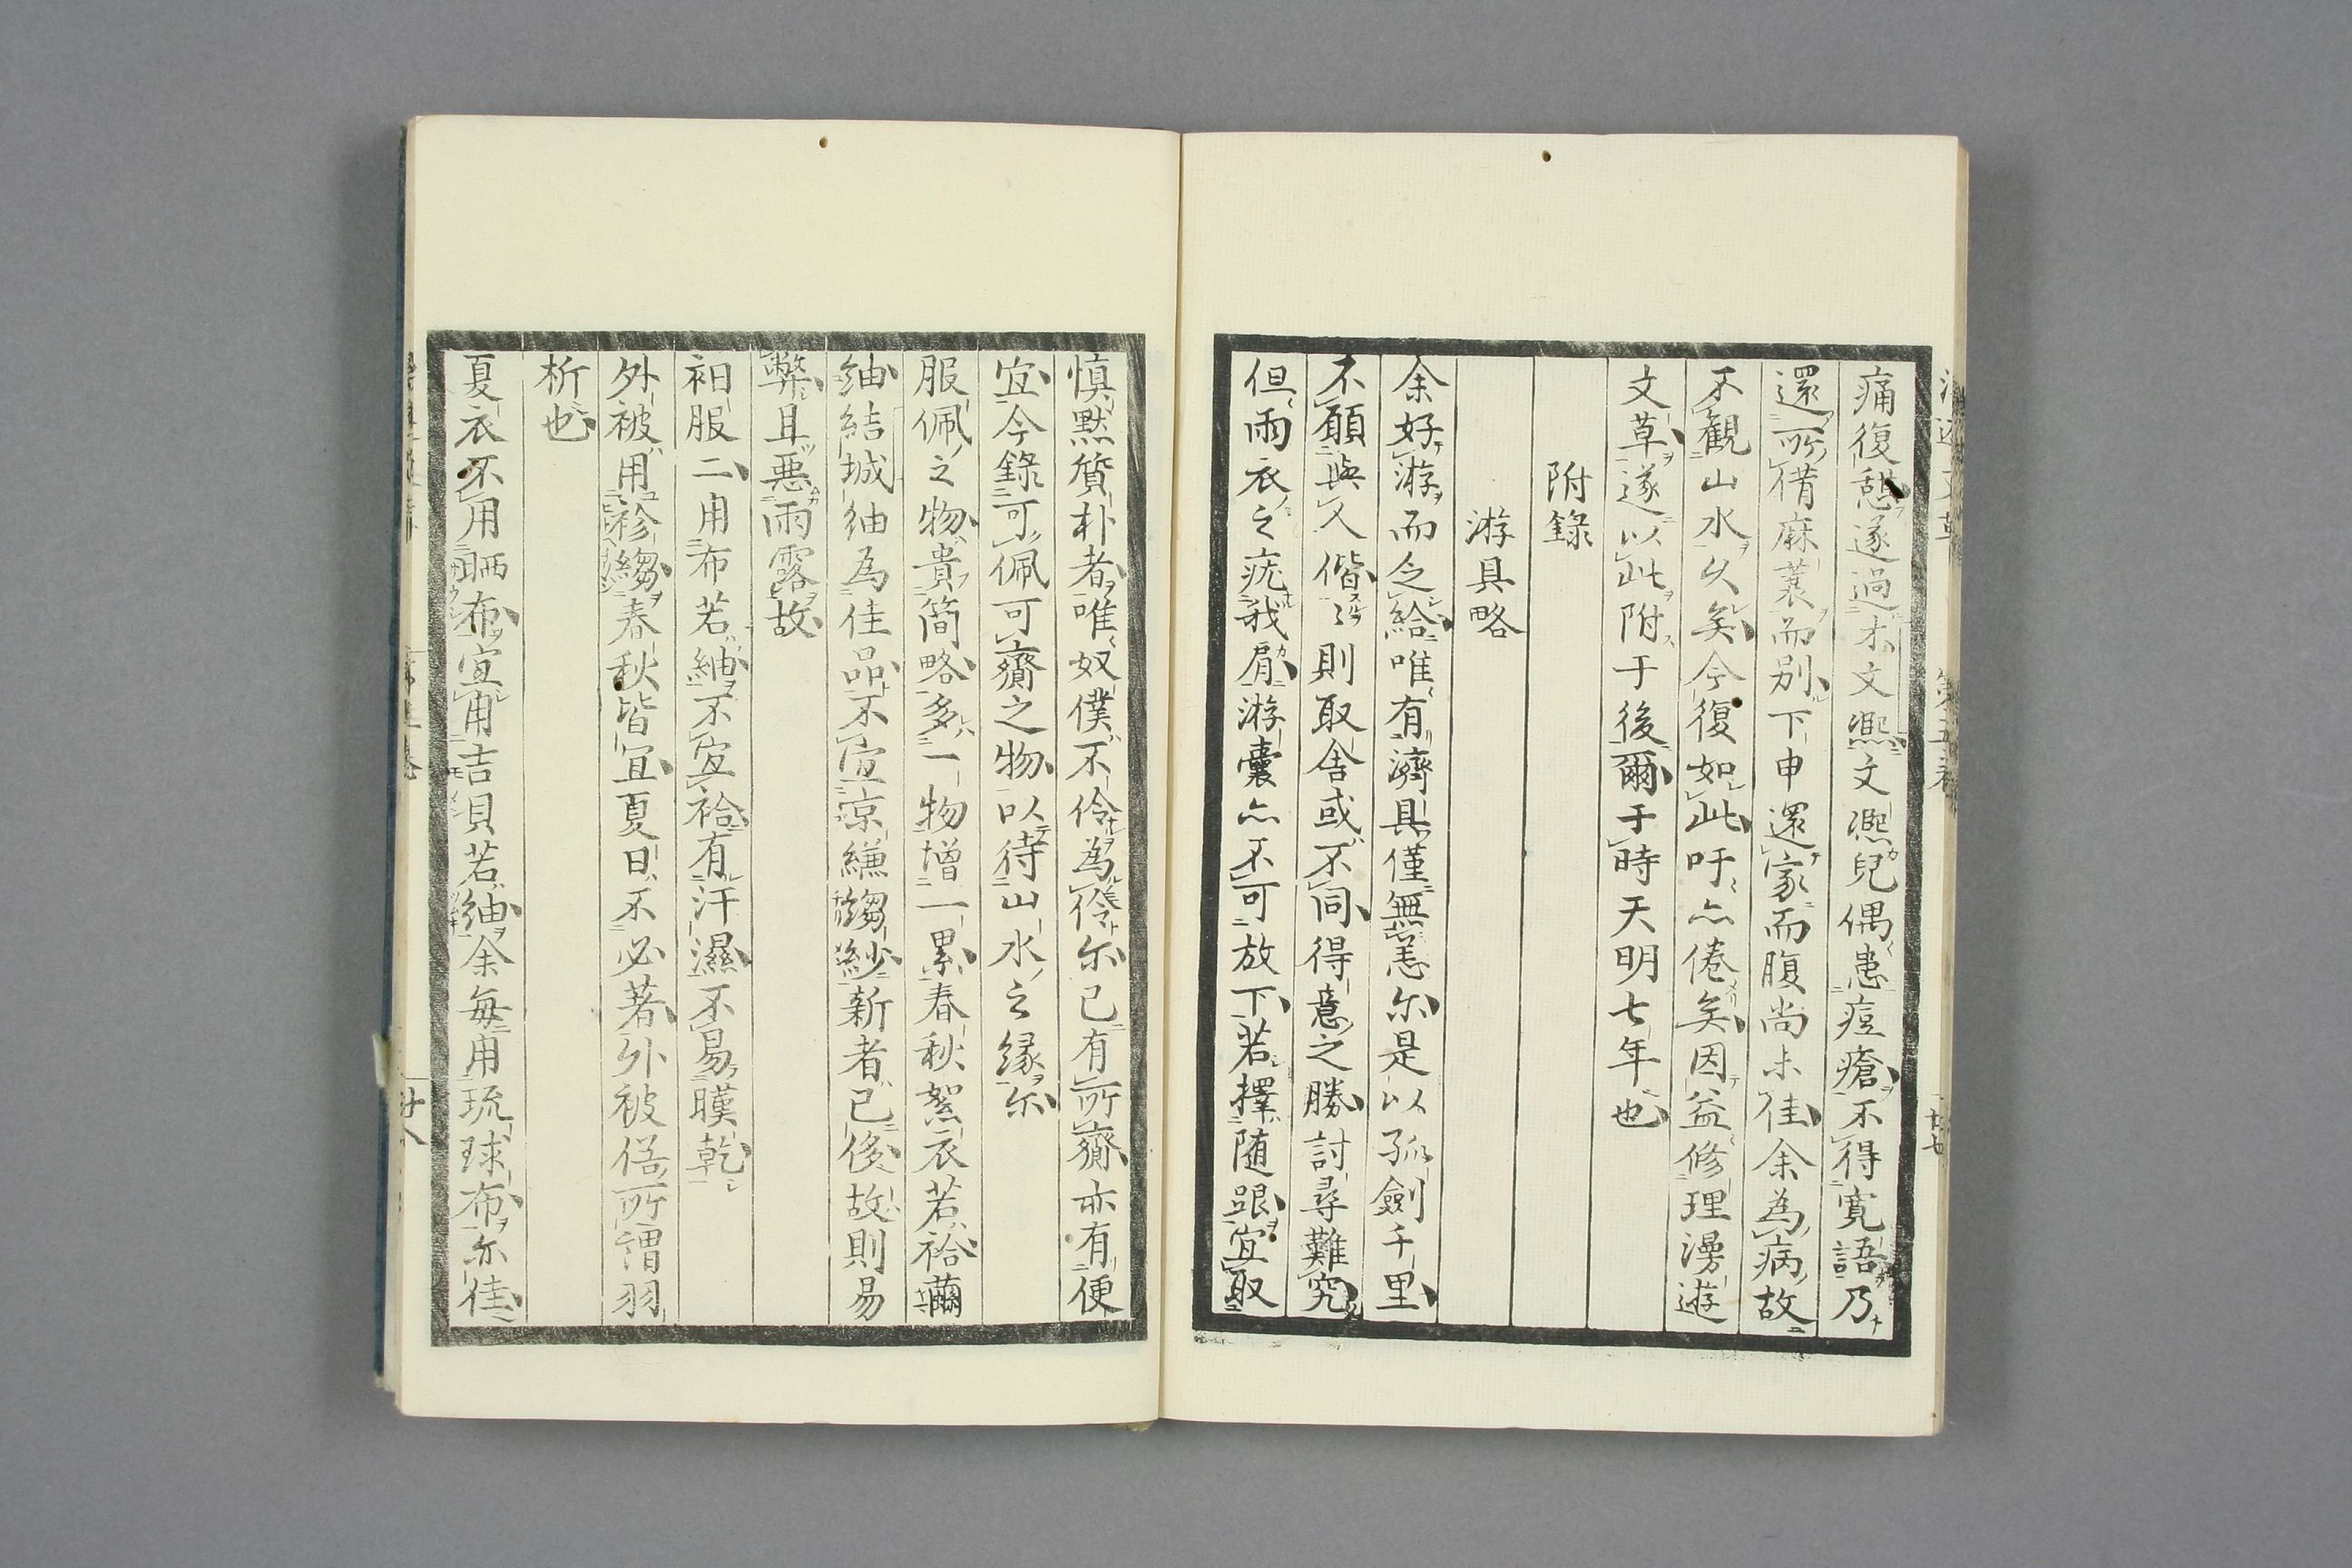 痛復憩遂過木文凞文凞兒偶患痘瘡不得寬語乃
還所借麻蓑而別下申還家而腹尚未佳余為病故
不觀山水久矣今復如此吁亦倦矣因益修理漫遊
文草遂以此附于後爾于時天明七年也
附錄
游具略
余好游而乏給唯有濟具僅無恙尔是以孤劍千里
不願與人偕々則取舍或不同得意之勝討尋難究
但雨衣之疣我肩游囊亦不可放下若擇随跟宜取
慎黙質朴者唯奴僕不伶為伶尔已有所齎亦有便
宜今錄可佩可齎之物以待山水之緣尔
服佩之物貴簡略多一物增一累春秋絮衣若袷繭
紬結城紬為佳品不宜涼縑縐紗新者已侈故則易
弊且惡雨露故
衵服二用布若紬不宜袷有汗濕不易暵乾
外被用袗縐春秋皆宜夏日不必著外被俗所謂羽
析也
夏衣不用晒布宜用吉貝若紬余每用琉球布亦佳
第五卷
廿七
廿八